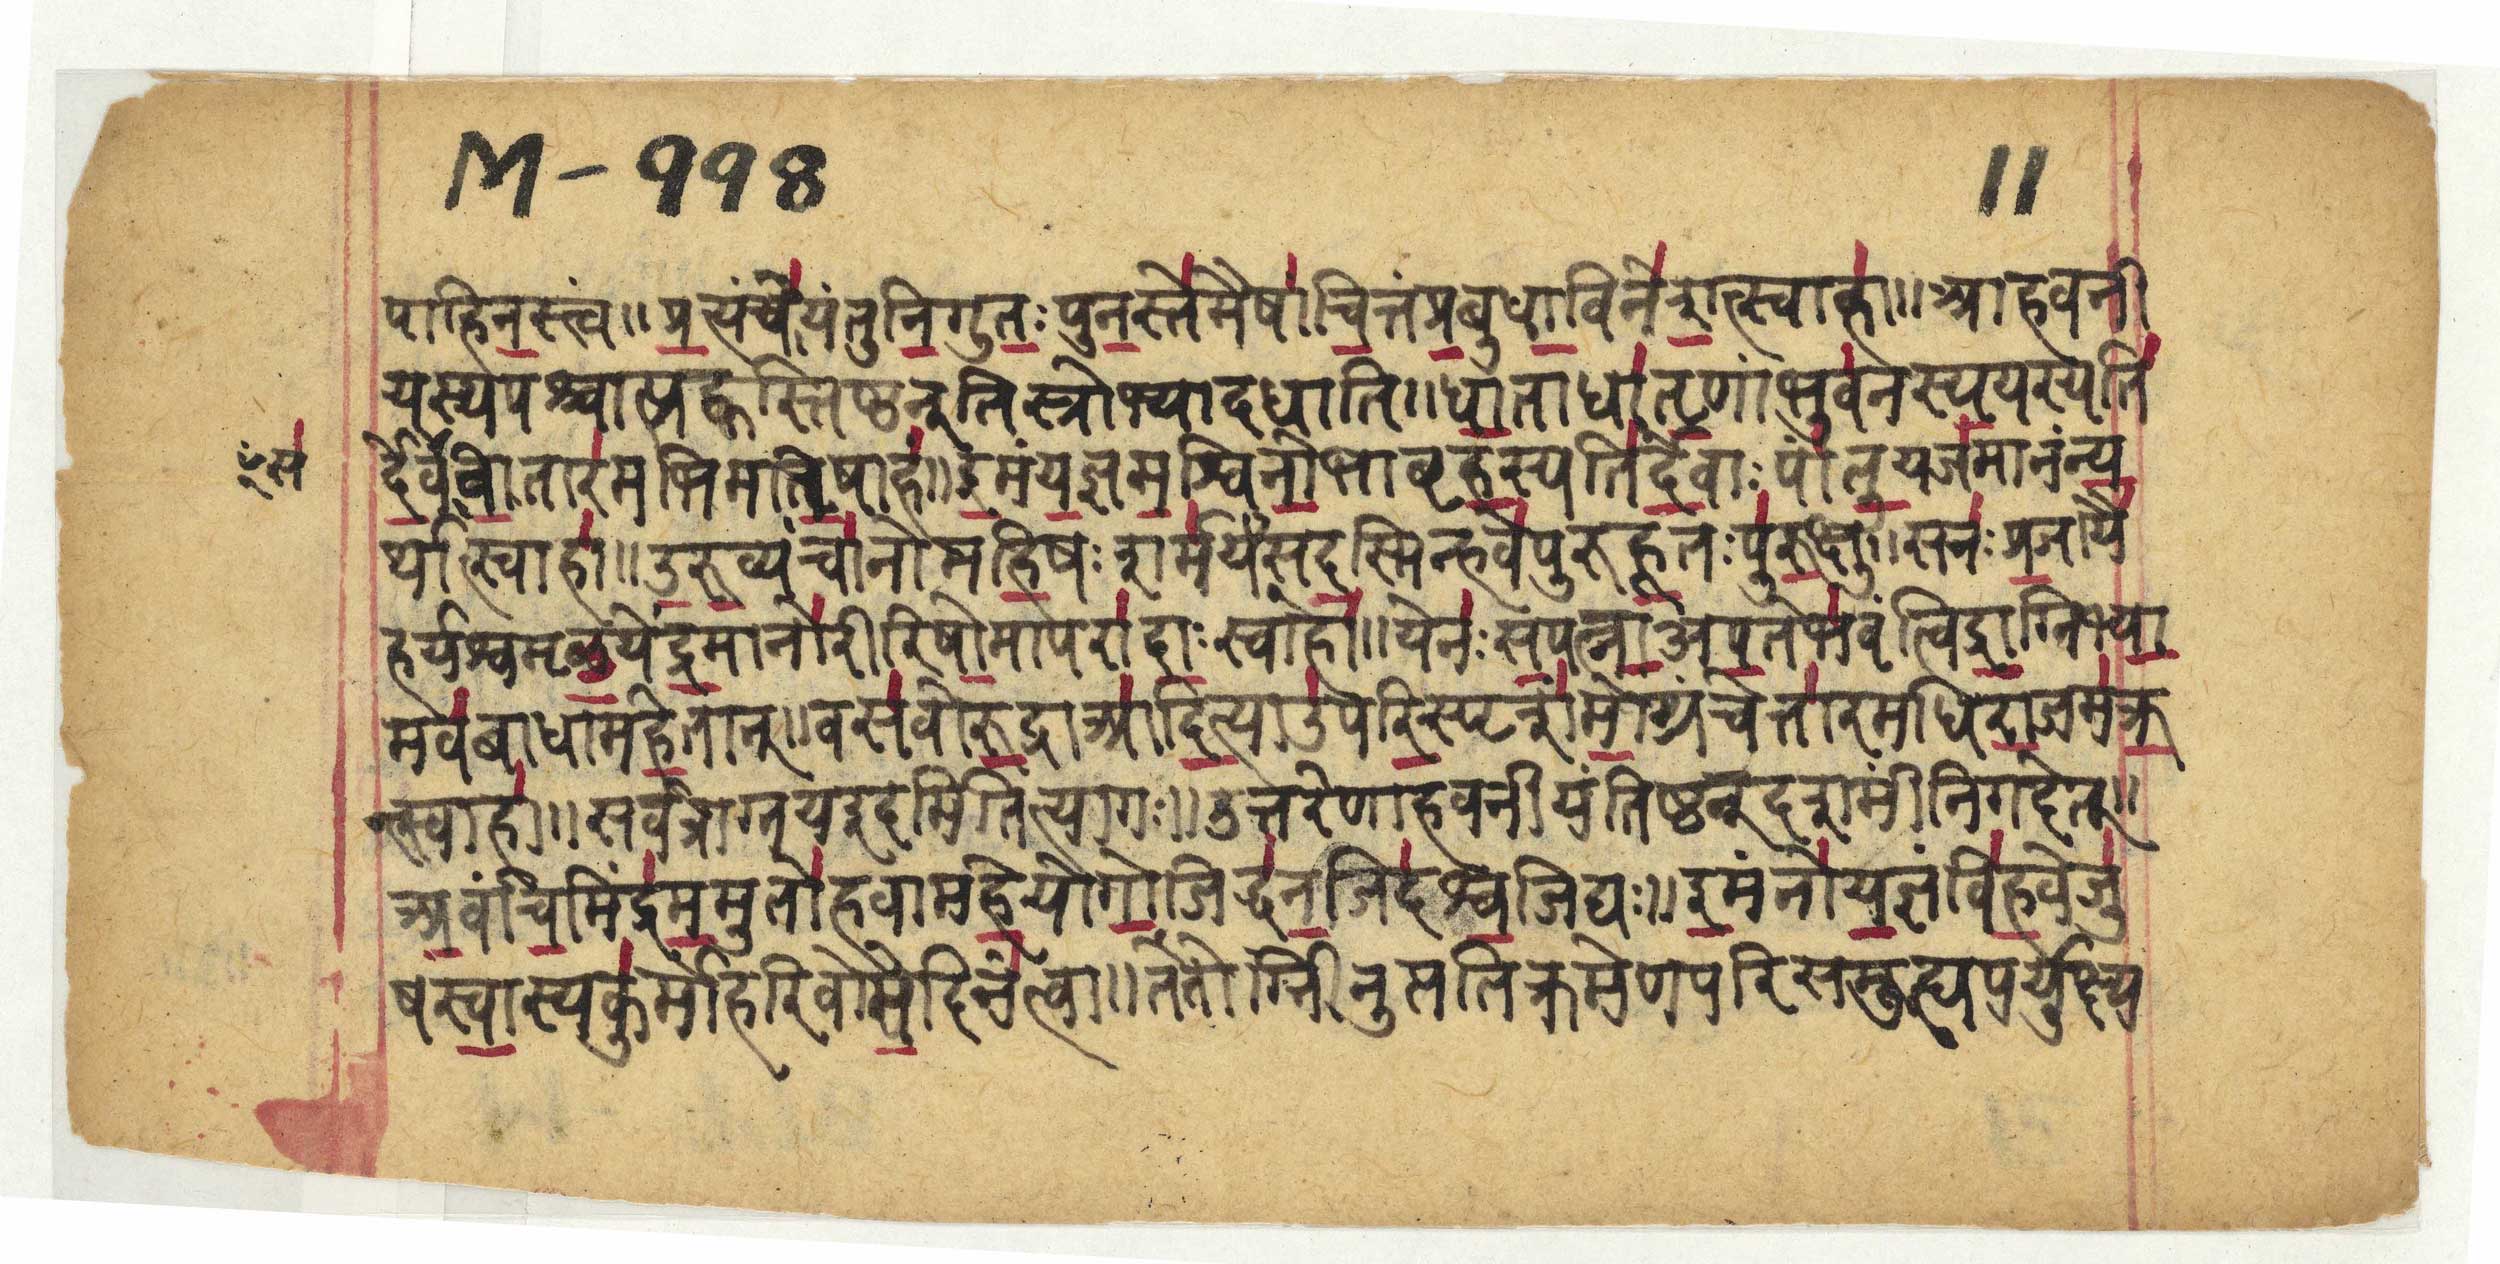 M-११8 11
पाहिनस्त्वं॥प्रत्यंचोयंतुनिगुतः पुनस्तेमैषांचित्तंप्रबुधाविनेशत्स्वाहा॥आहवनी
यस्यपश्चात्प्रह्वस्तिष्ठन्नतिस्त्रोभ्यादधाति॥धाताधातॄणांभुवनस्ययस्पति
र्देवंत्रातारमभिमातिषाहं॥इमंयज्ञमश्विनोभाबृहस्पतिर्देवाः पांतुयजमानंन्य
र्थात्स्वाहा॥उरुव्यचानोमहिषः शर्मयंसदस्मिन्हवेपुरुहूतः पुरुक्षुः॥सनः प्रजायै
हर्यश्वमळयेंद्रमानोरीरिषोमापरादाः स्वाहा॥येनः सपत्नाअपतेभवंत्विंद्राग्निभ्या
मवबाधामहेतान्॥वसवोरुद्राआदित्याउपरिस्पृशंमोग्रंचेत्तारमधिराजमक्र
न्त्स्वाहा॥सर्वत्राग्नयइदमितित्यागः॥उत्तरेणाहवनीयंतिष्ठन्दशमींनिगदेत्॥
अर्वांचमिंद्रममुतोहवामहेयोगोजिद्धनजिदश्वजिद्यः॥इमंनोयज्ञंविहवेजु
षस्वास्यकुर्मोहरिवोमेदिनंत्वा॥ततोग्नीनुसतिक्रमेणपरिसमुह्यपर्युक्ष्य